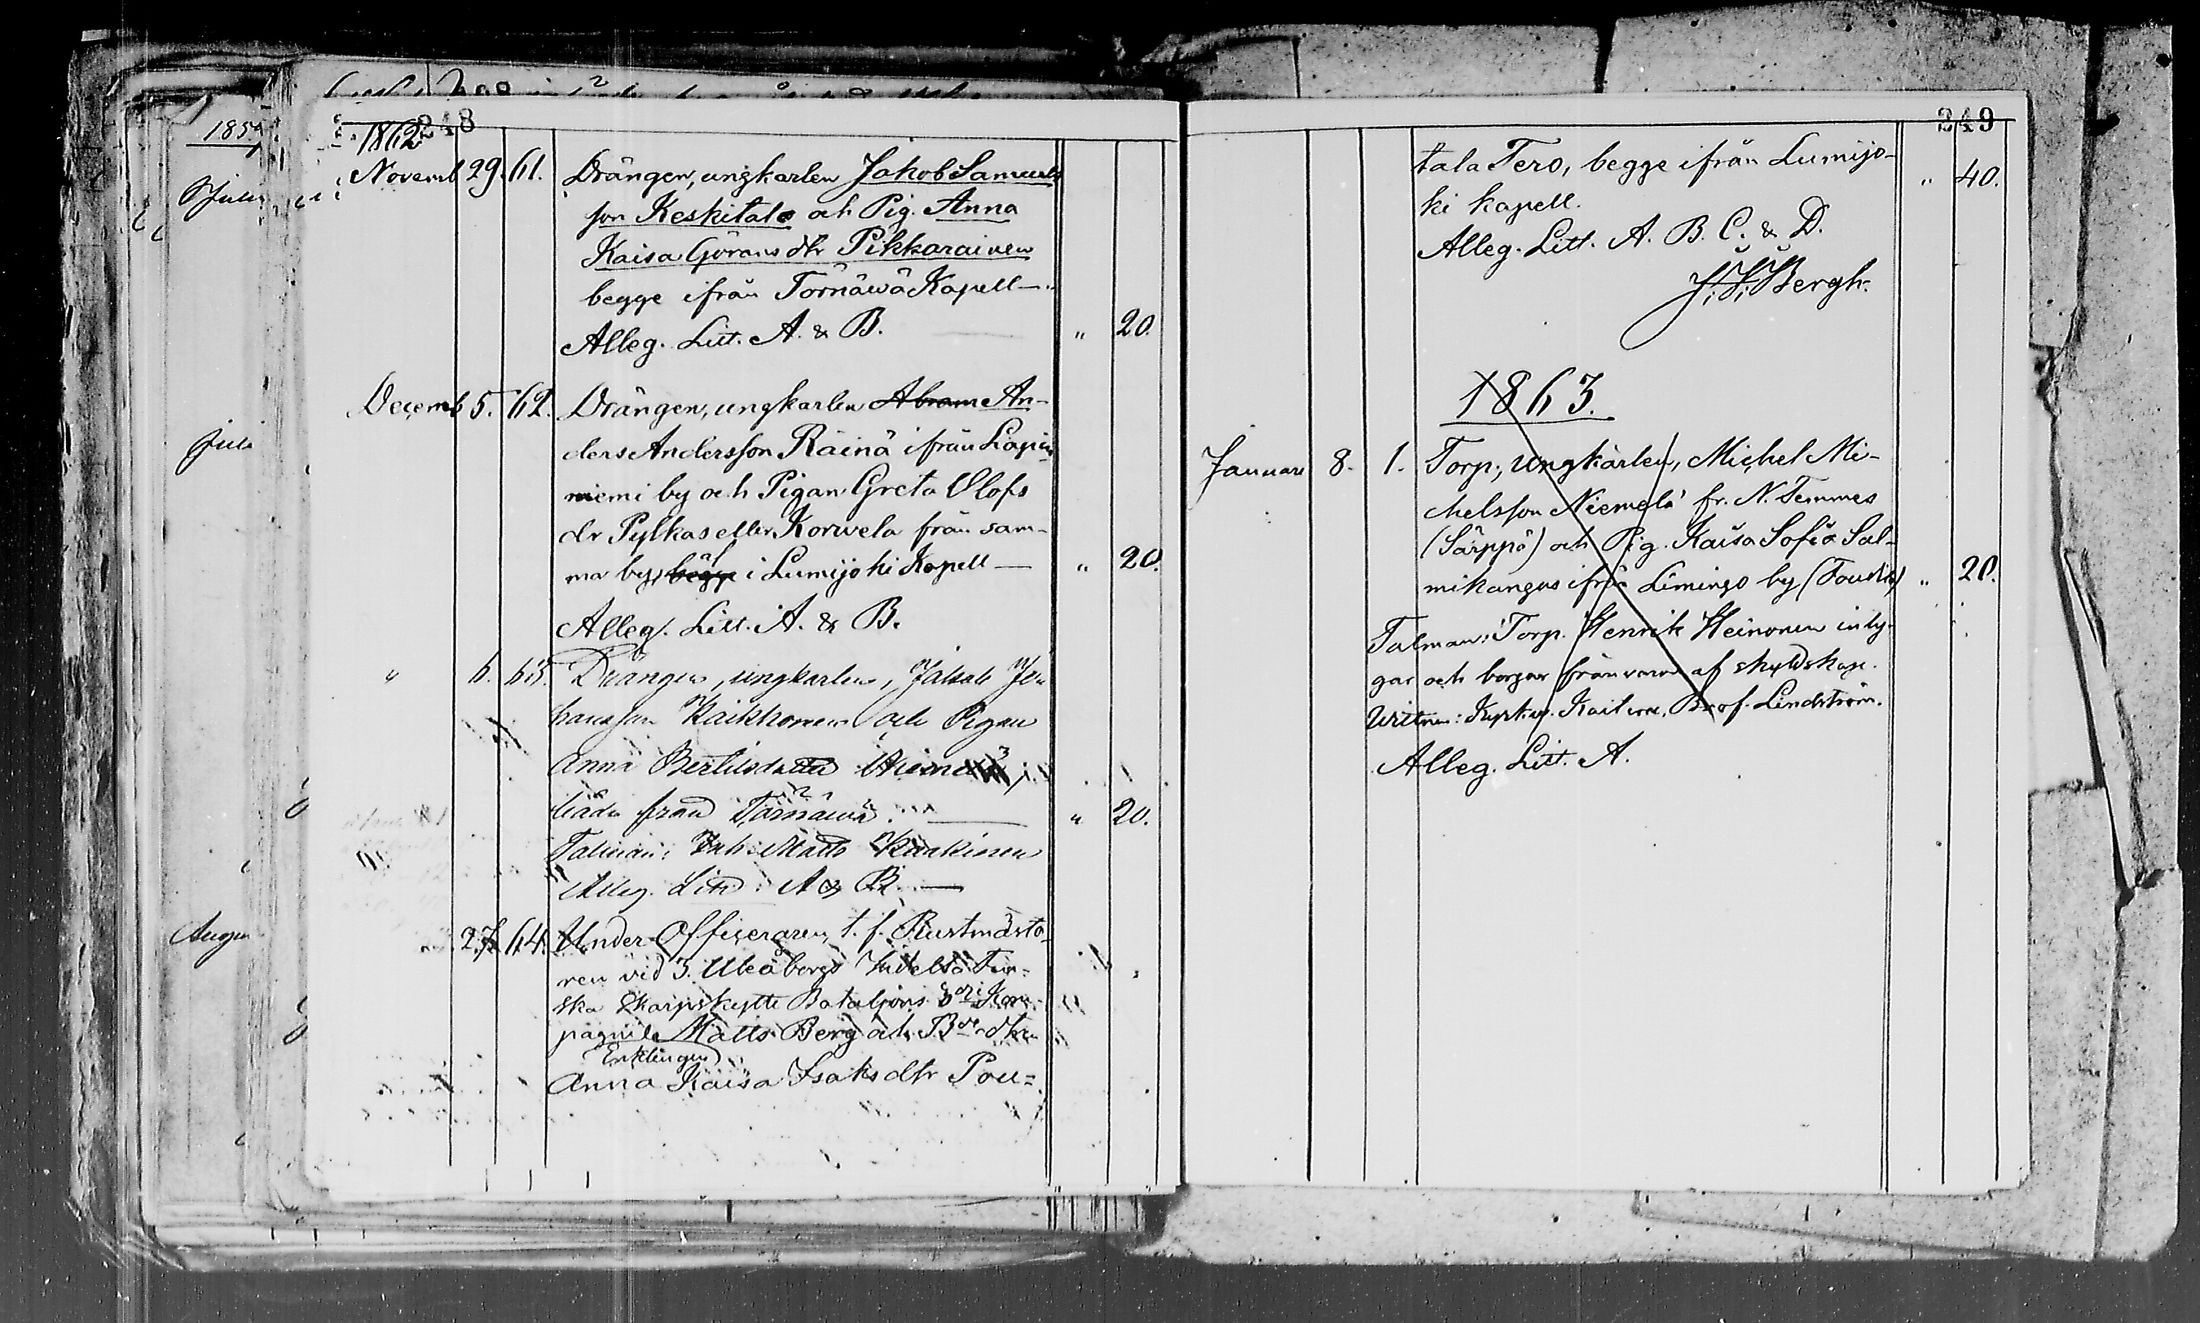 1857
Juli
Juli
Augu
248
1862
Novemb 29. 61. Drängen, ungkarlen Jakob Samuels
son Keskitalo och Pig. Anna
Kaisa Görans dtr Pikkarainen
begge ifrån Törnäwä Kapell —
Alleg. Litt. A. & B. " 20.
Decemb 5. 62. Drängen, ungkarlen Abram An-
ders Andersson Räinä ifrån Lapin
niemi by och Pigan Greta Olofs
dr Pylkas eller Korwela från sam-
ma by, begge af i Lumijoki Kapell — " 20.
Alleg. Litt. A. & B.
" 6. 63. Drängen, ungkarlen, Jakob Jo
hansson Kaikkonen och Pigan
Anna Bertilsdotter
båda från Törnäwä. — " 20.
Talman: Inh. Matts
Alleg. Litt. A & B. —
27. 64. Under-Officeraren, t. f. Rustmästa-
ren vid 3. Uleåborgs Indelta Fin-
ska Skarpskytte Bataljons Kom-
pagnie Matts Berg och Bde dtr
Enklingen
Anna Kaisa Isaks dtr Pou=
249
tala Tero, begge ifrån Lumijo-
ki kapell. " 40.
Alleg. Litt. A. B. C. & D.
Bergh.
1863.
Januari 8. 1. Torp., Ungkarlen, Michel Mi-
chelsson Niemelä fr. N. Temmes
(Särppä) och Pig. Kaisa Sofia Sal-
mikangas ifrån Limingo by " 20.
Talman: Torp. Henrik Heinonen inty-
gar och borgar frånvaro af skyldskap.
Wittne: Kyrkw. Lindström.
Alleg. Litt. A.